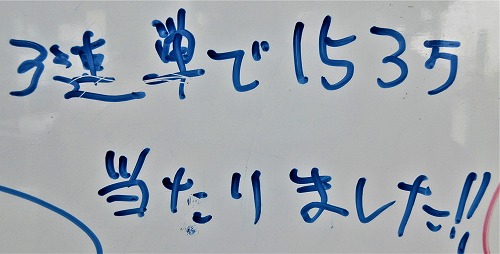 3連単で153万
当たりました!!